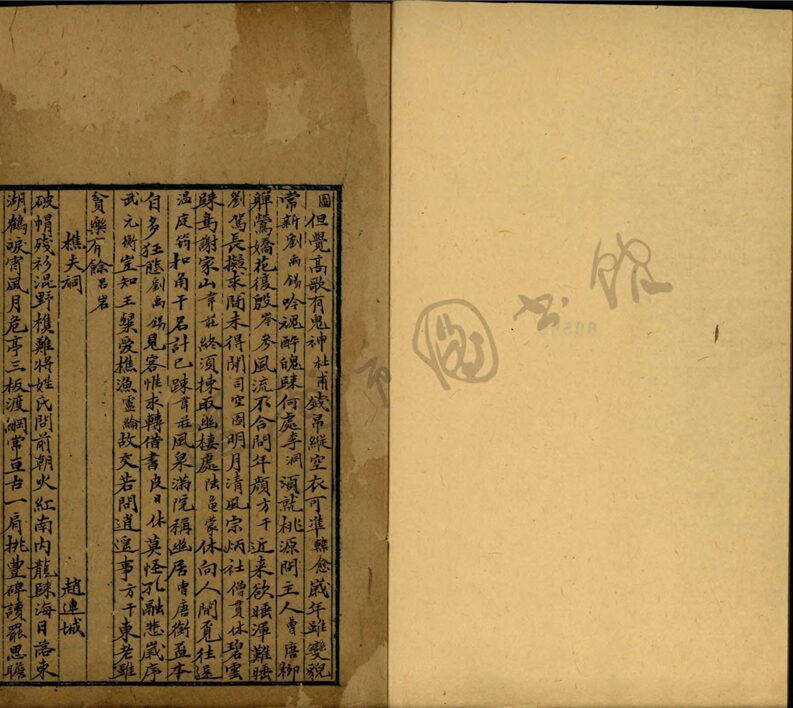 圖但覺高歌有鬼神杜甫錢帛縱空衣可準韓愈歲年雖變貌
常新劉禹錫吟魂醉魄歸何處李洞須就桃源問主人曹唐柳
嚲鶯嬌花復殷岑參風流不合問年顏方干近来欲睡渾難睡
劉篤長擬求閒未得閒司空圖明月清風宗炳社僧貫休碧雲
歸鳥謝家山韋莊終須揀取幽棲處陸龜蒙休向人間覓往還
温庭筠扣角干名計已疎韋莊風泉滿院稱幽居曹唐銜盃本
自多狂態劉禹錫見客惟求轉借書皮日休莫怪孔融悲歲序
武元衡豈知王粲愛樵漁盧綸故交若問逍遥事方干東老雖
貧樂有餘呂岩
樵夫祠 趙連城
破帽殘衫混野樵難將姓氏問前朝火紅南内龍歸海日落東
湖鶴唳宵風月危亭三板渡綱常亘古一肩挑豐碑讀罷思瞻
市图书館